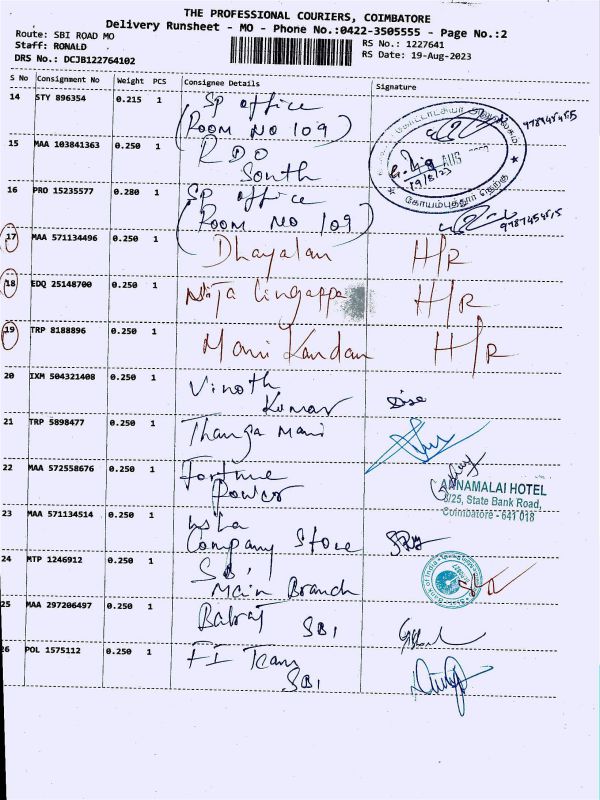 THE PROFESSIONAL COURIERS, COIMBATORE
Delivery Runsheet - MO - Phone No.:0422-3505555 - Page No.:2
Route: SBI ROAD MO
Staff: RONALD
DRS No.: DCJB122764102
RS No.: 1227641
RS Date: 19-Aug-2023
S No Consignment No Weight PCS Consignee Details Signature
14 STY 896354 0.215 1 SP office
(Room No 109) 9787454515
15 MAA 103841363 0.250 1 RDO
South
19/8/23
16 PRO 15235577 0.280 1 SP office
(Room No 109) 9787454515
17 MAA 571134496 0.250 1 Dhayalan H/R
18 EDQ 25148700 0.250 1 Lingappa H/R
19 TRP 8188896 0.250 1 Mani Kandan H/R
20 IXM 504321408 0.250 1 Vinoth
Kumar
21 TRP 5898477 0.250 1 Thanga Mani
22 MAA 572558676 0.250 1 Fortune
Power
ANNAMALAI HOTEL
8/25, State Bank Road,
Coimbatore - 641 018
23 MAA 571134514 0.250 1 Usha
Company Store
24 MTP 1246912 0.250 1 SBI
Main Branch
25 MAA 297206497 0.250 1 SBI
26 POL 1575112 0.250 1 FI Team
SBI